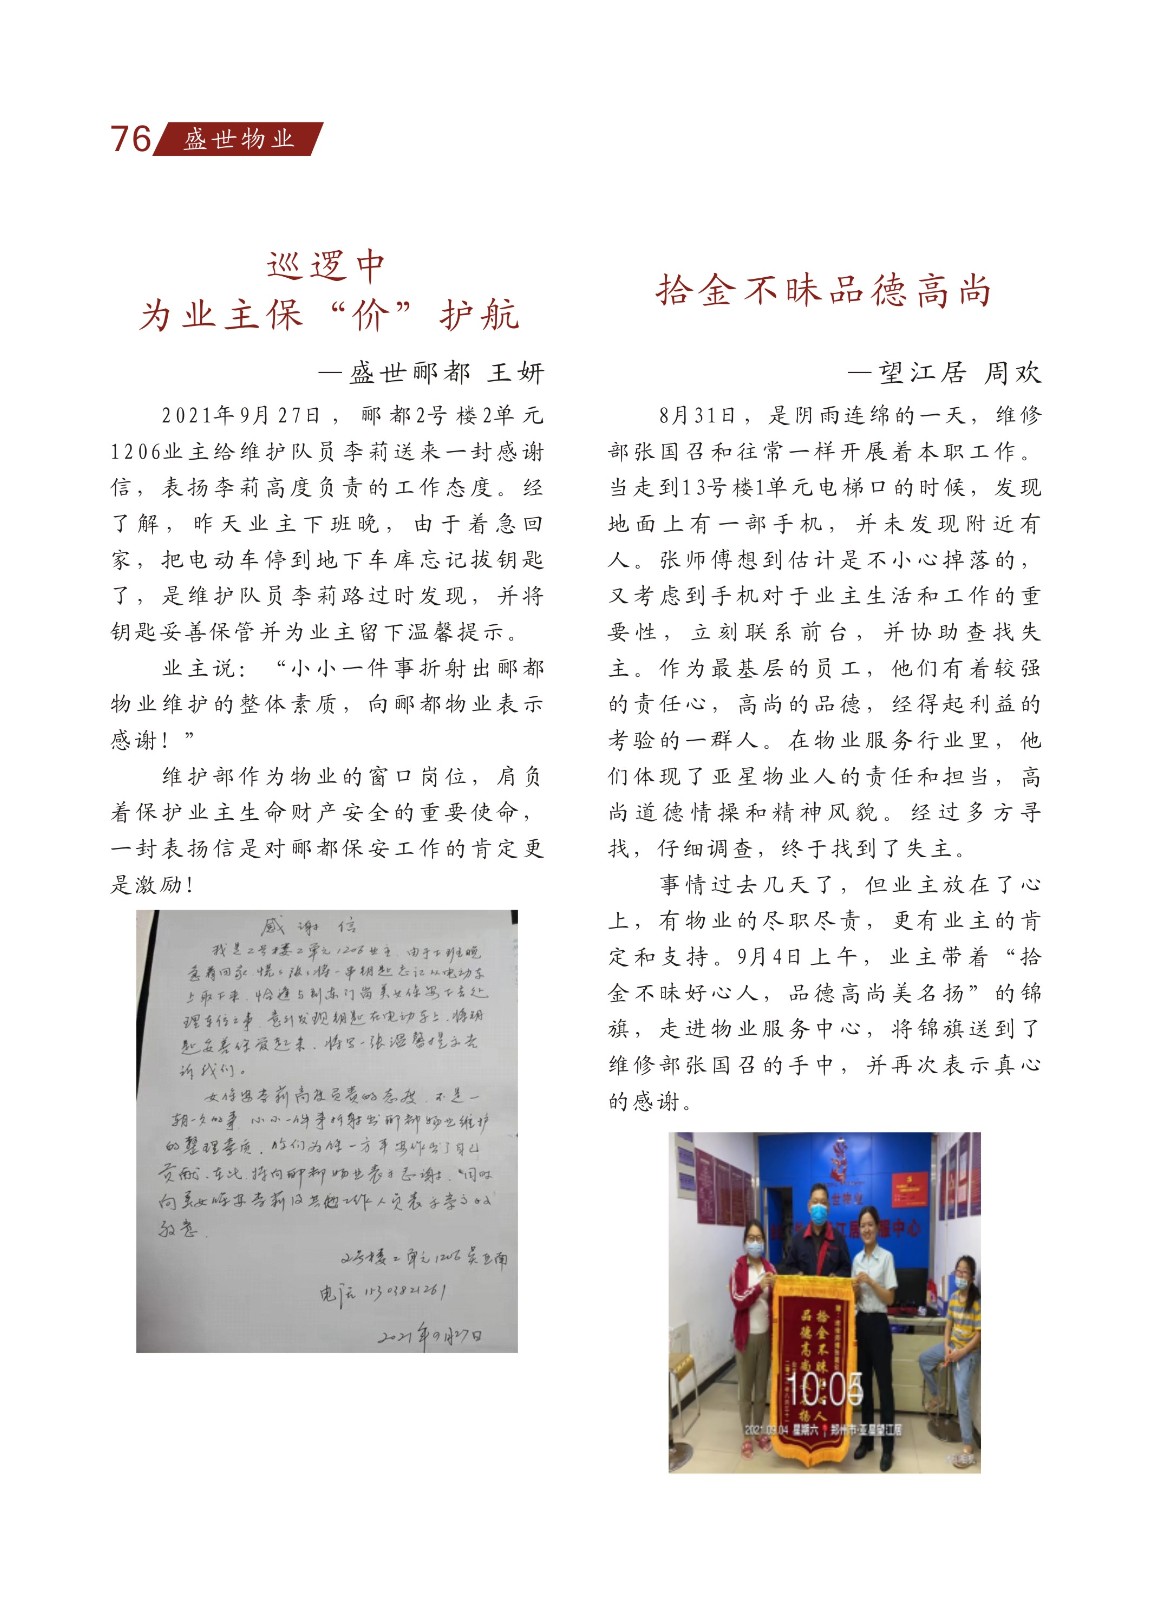 76 盛世物业
巡逻中
为业主保“价”护航
—盛世郦都 王妍
2021年9月27日，郦都2号楼2单元
1206业主给维护队员李莉送来一封感谢
信，表扬李莉高度负责的工作态度。经
了解，昨天业主下班晚，由于着急回
家，把电动车停到地下车库忘记拔钥匙
了，是维护队员李莉路过时发现，并将
钥匙妥善保管并为业主留下温馨提示。
业主说：“小小一件事折射出郦都
物业维护的整体素质，向郦都物业表示
感谢！”
维护部作为物业的窗口岗位，肩负
着保护业主生命财产安全的重要使命，
一封表扬信是对郦都保安工作的肯定更
是激励！
感谢信
我是2号楼2单元1206业主，由于下班晚
着急回家，慌慌张张将一串钥匙忘记从电动车
上取下来，恰逢与别东门岗美女保安下去处
理车位之事，意外发现钥匙在电动车上，将钥
匙妥善保管起来，特写一张温馨提示告
诉我们。
女保安李莉高度负责的态度，不是一
朝一夕的事，小小一件事折射出郦都物业维护
的整理素质，你们为保一方平安作出了自己
贡献，在此，特向郦都物业表示感谢，"同时
向美女保安李莉及其他工作人员表示崇高的
敬意
2号楼2单元1206
电话 15303821269
2021年9月27日
拾金不昧品德高尚
—望江居 周欢
8月31日，是阴雨连绵的一天，维修
部张国召和往常一样开展着本职工作。
当走到13号楼1单元电梯口的时候，发现
地面上有一部手机，并未发现附近有
人。张师傅想到估计是不小心掉落的，
又考虑到手机对于业主生活和工作的重
要性，立刻联系前台，并协助查找失
主。作为最基层的员工，他们有着较强
的责任心，高尚的品德，经得起利益的
考验的一群人。在物业服务行业里，他
们体现了亚星物业人的责任和担当，高
尚道德情操和精神风貌。经过多方寻
找，仔细调查，终于找到了失主。
事情过去几天了，但业主放在了心
上，有物业的尽职尽责，更有业主的肯
定和支持。9月4日上午，业主带着“拾
金不昧好心人，品德高尚美名扬”的锦
旗，走进物业服务中心，将锦旗送到了
维修部张国召的手中，并再次表示真心
的感谢。
拾金不昧 人
品德高尚 扬
10:05
2021.09.04 星期六 郑州市·亚星望江居